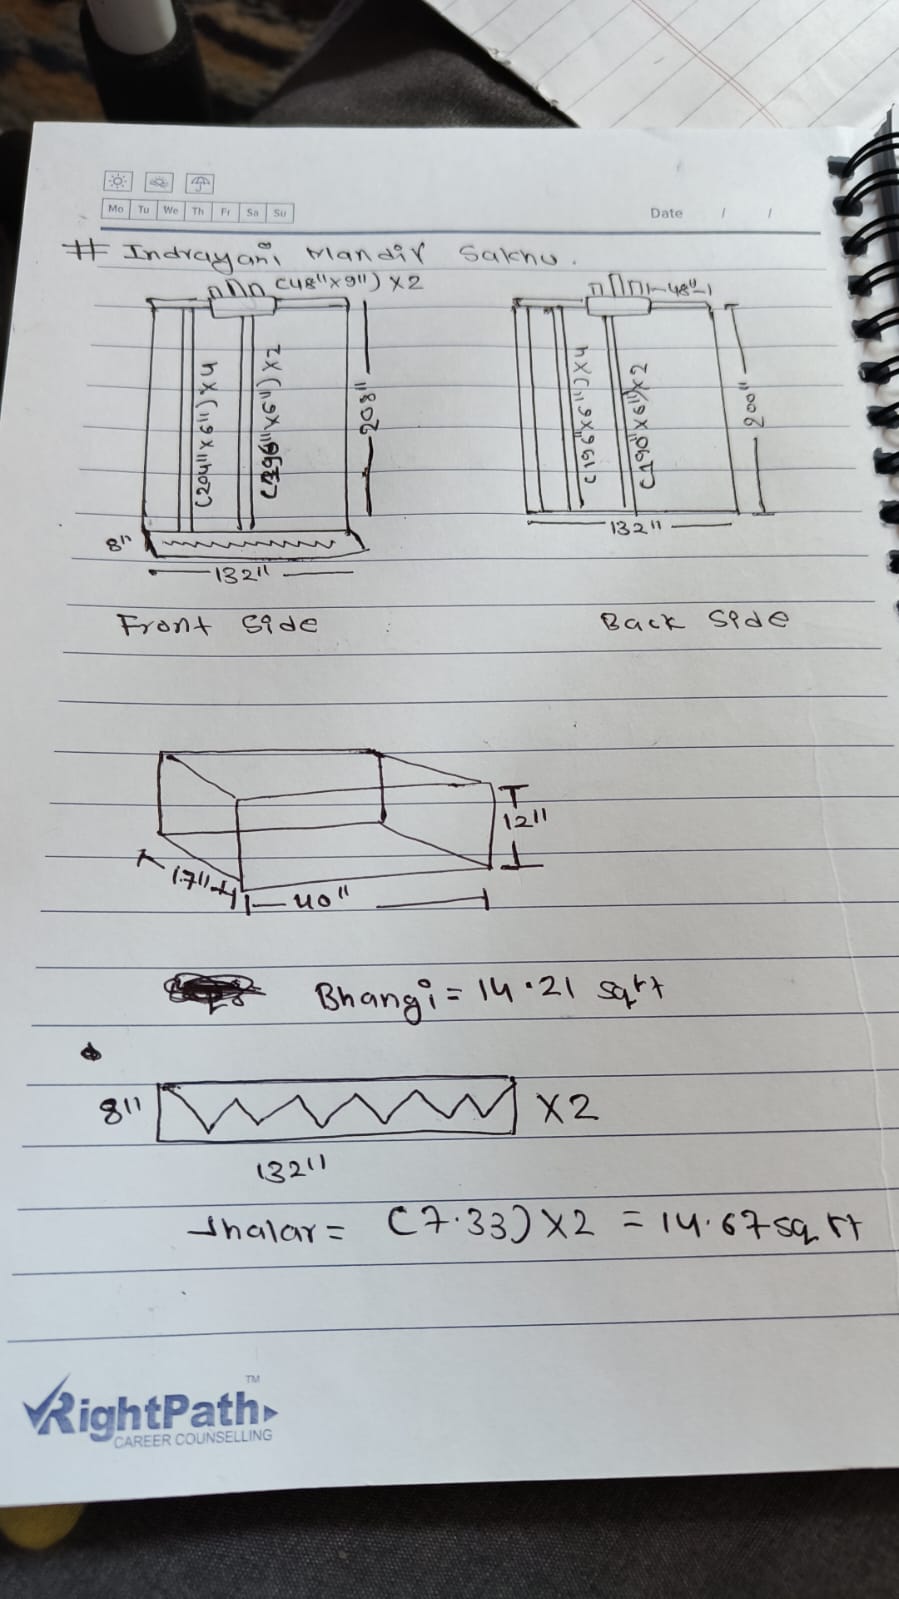 Mo Tu We Th Fr Sa Su
Date / /
# Indrayani Mandir Sakhu.
(48"x9") x2
(204"x6") x4
(196"x6") x2
208"
8"
132"
Front Side
48"
(196"x6") x4
(190"x6") x2
200"
132"
Back Side
12"
17"
40"
Bhangi = 14.21 sqft
8"
x2
132"
Jhalar = (7.33) x2 = 14.67 sq ft
RightPath TM
CAREER COUNSELLING